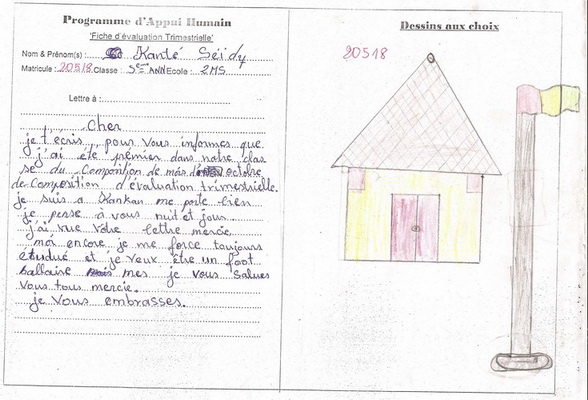 Programme d'Appui Humain
'Fiche d'évaluation Trimestrielle'
Nom & Prénom(s) : Kanté Seïdy
Matricule : 20518 Classe : 5è ANN Ecole : 2MS
Lettre à :
Cher
je t'ecris, pour vous informes que
j'ai été prémier dans notre clas
se du Composition de mois octobre
de Composition d'évaluation trimestrielle.
je suis a Kankan me porte bien
je pense à vous nuit et jour
j'ai vue votre lettre mercie
moi encore je me force toujours
étudué et je veux être un foot
ballaire mes je vous salues
Vous tous mercie.
je Vous embrasses.
Dessins aux choix
20518